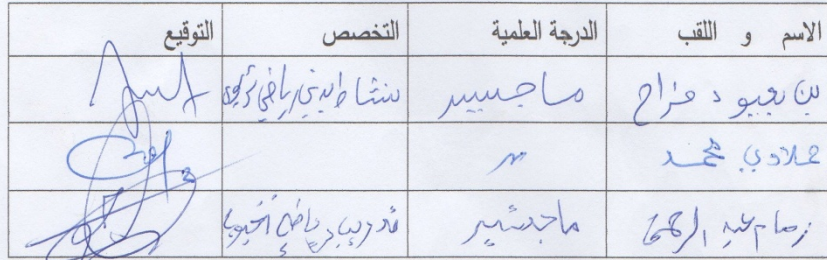 الاسم و اللقب الدرجة العلمية التخصص التوقيع
بن يعيود فراح ماجستير نشاط بدني رياضي تربوي
علادي محمد //
زمام عبد الرحمن ماجستير تدريب رياضي نخبوي